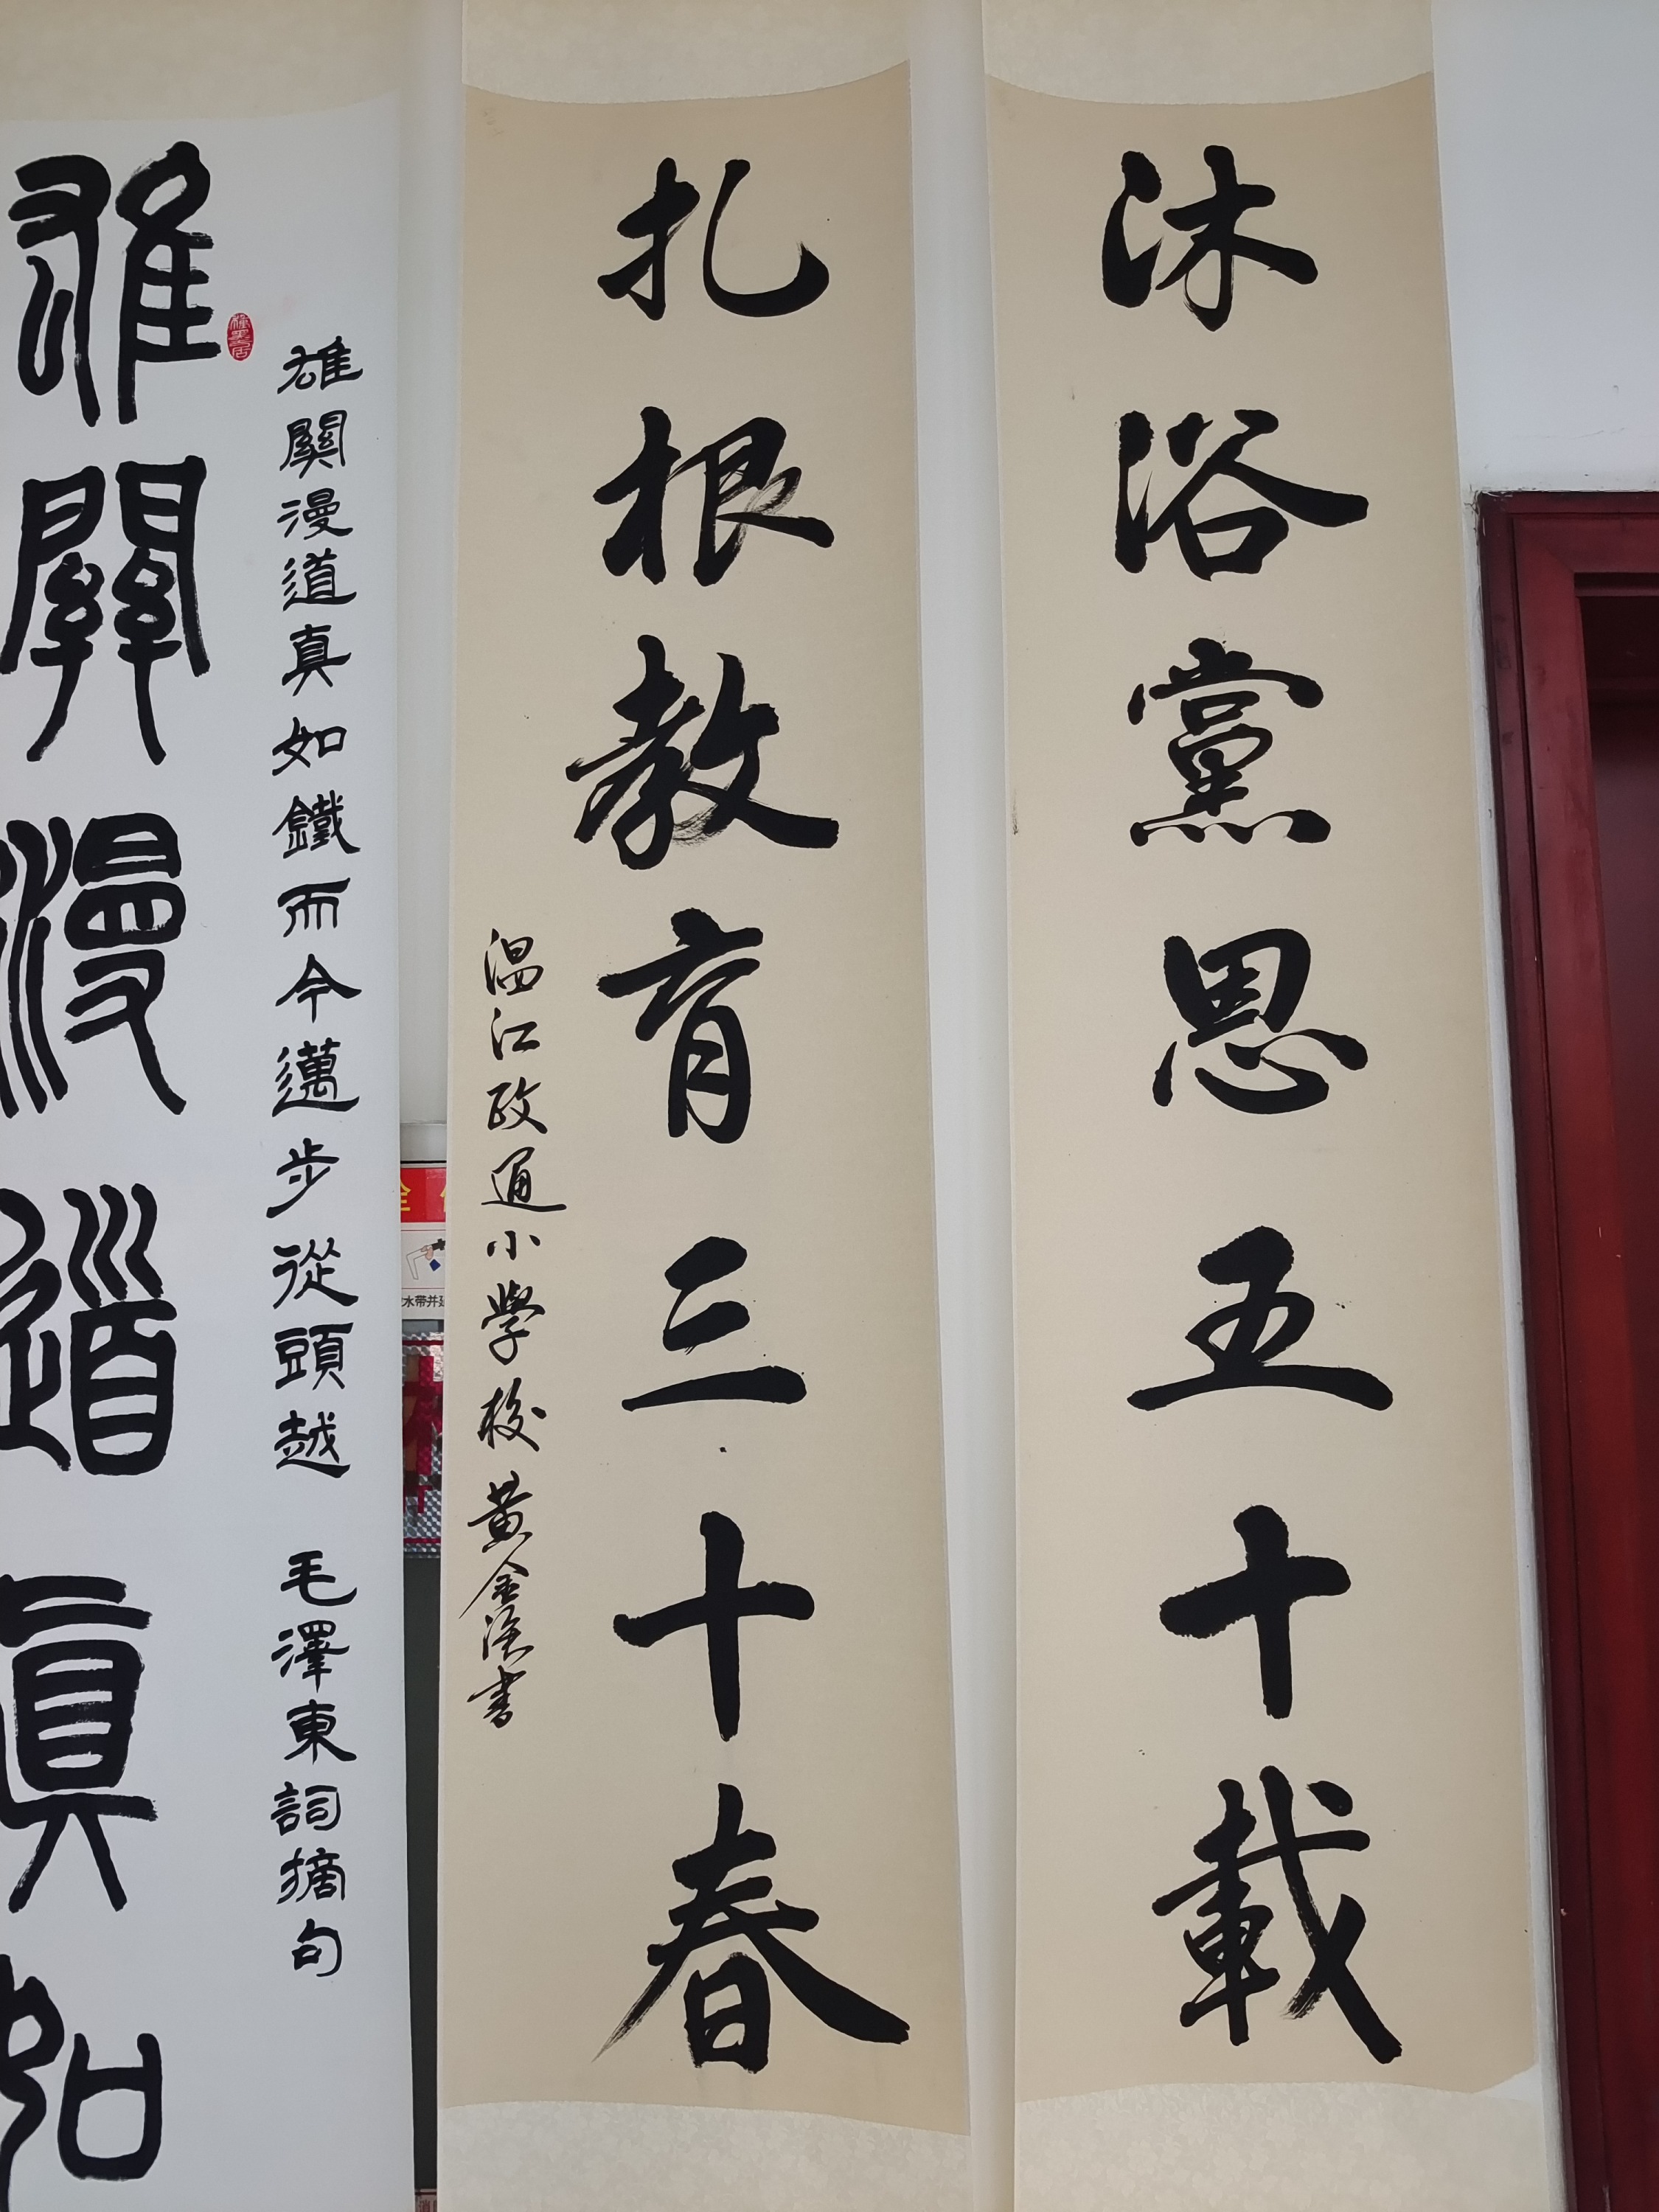 沐浴黨恩五十載
扎根教育三十春
温江政通小學校 黄金溪書
雄關漫道真如鐵而今邁步從頭越 毛澤東詞摘句
雄關漫道真如
水带并